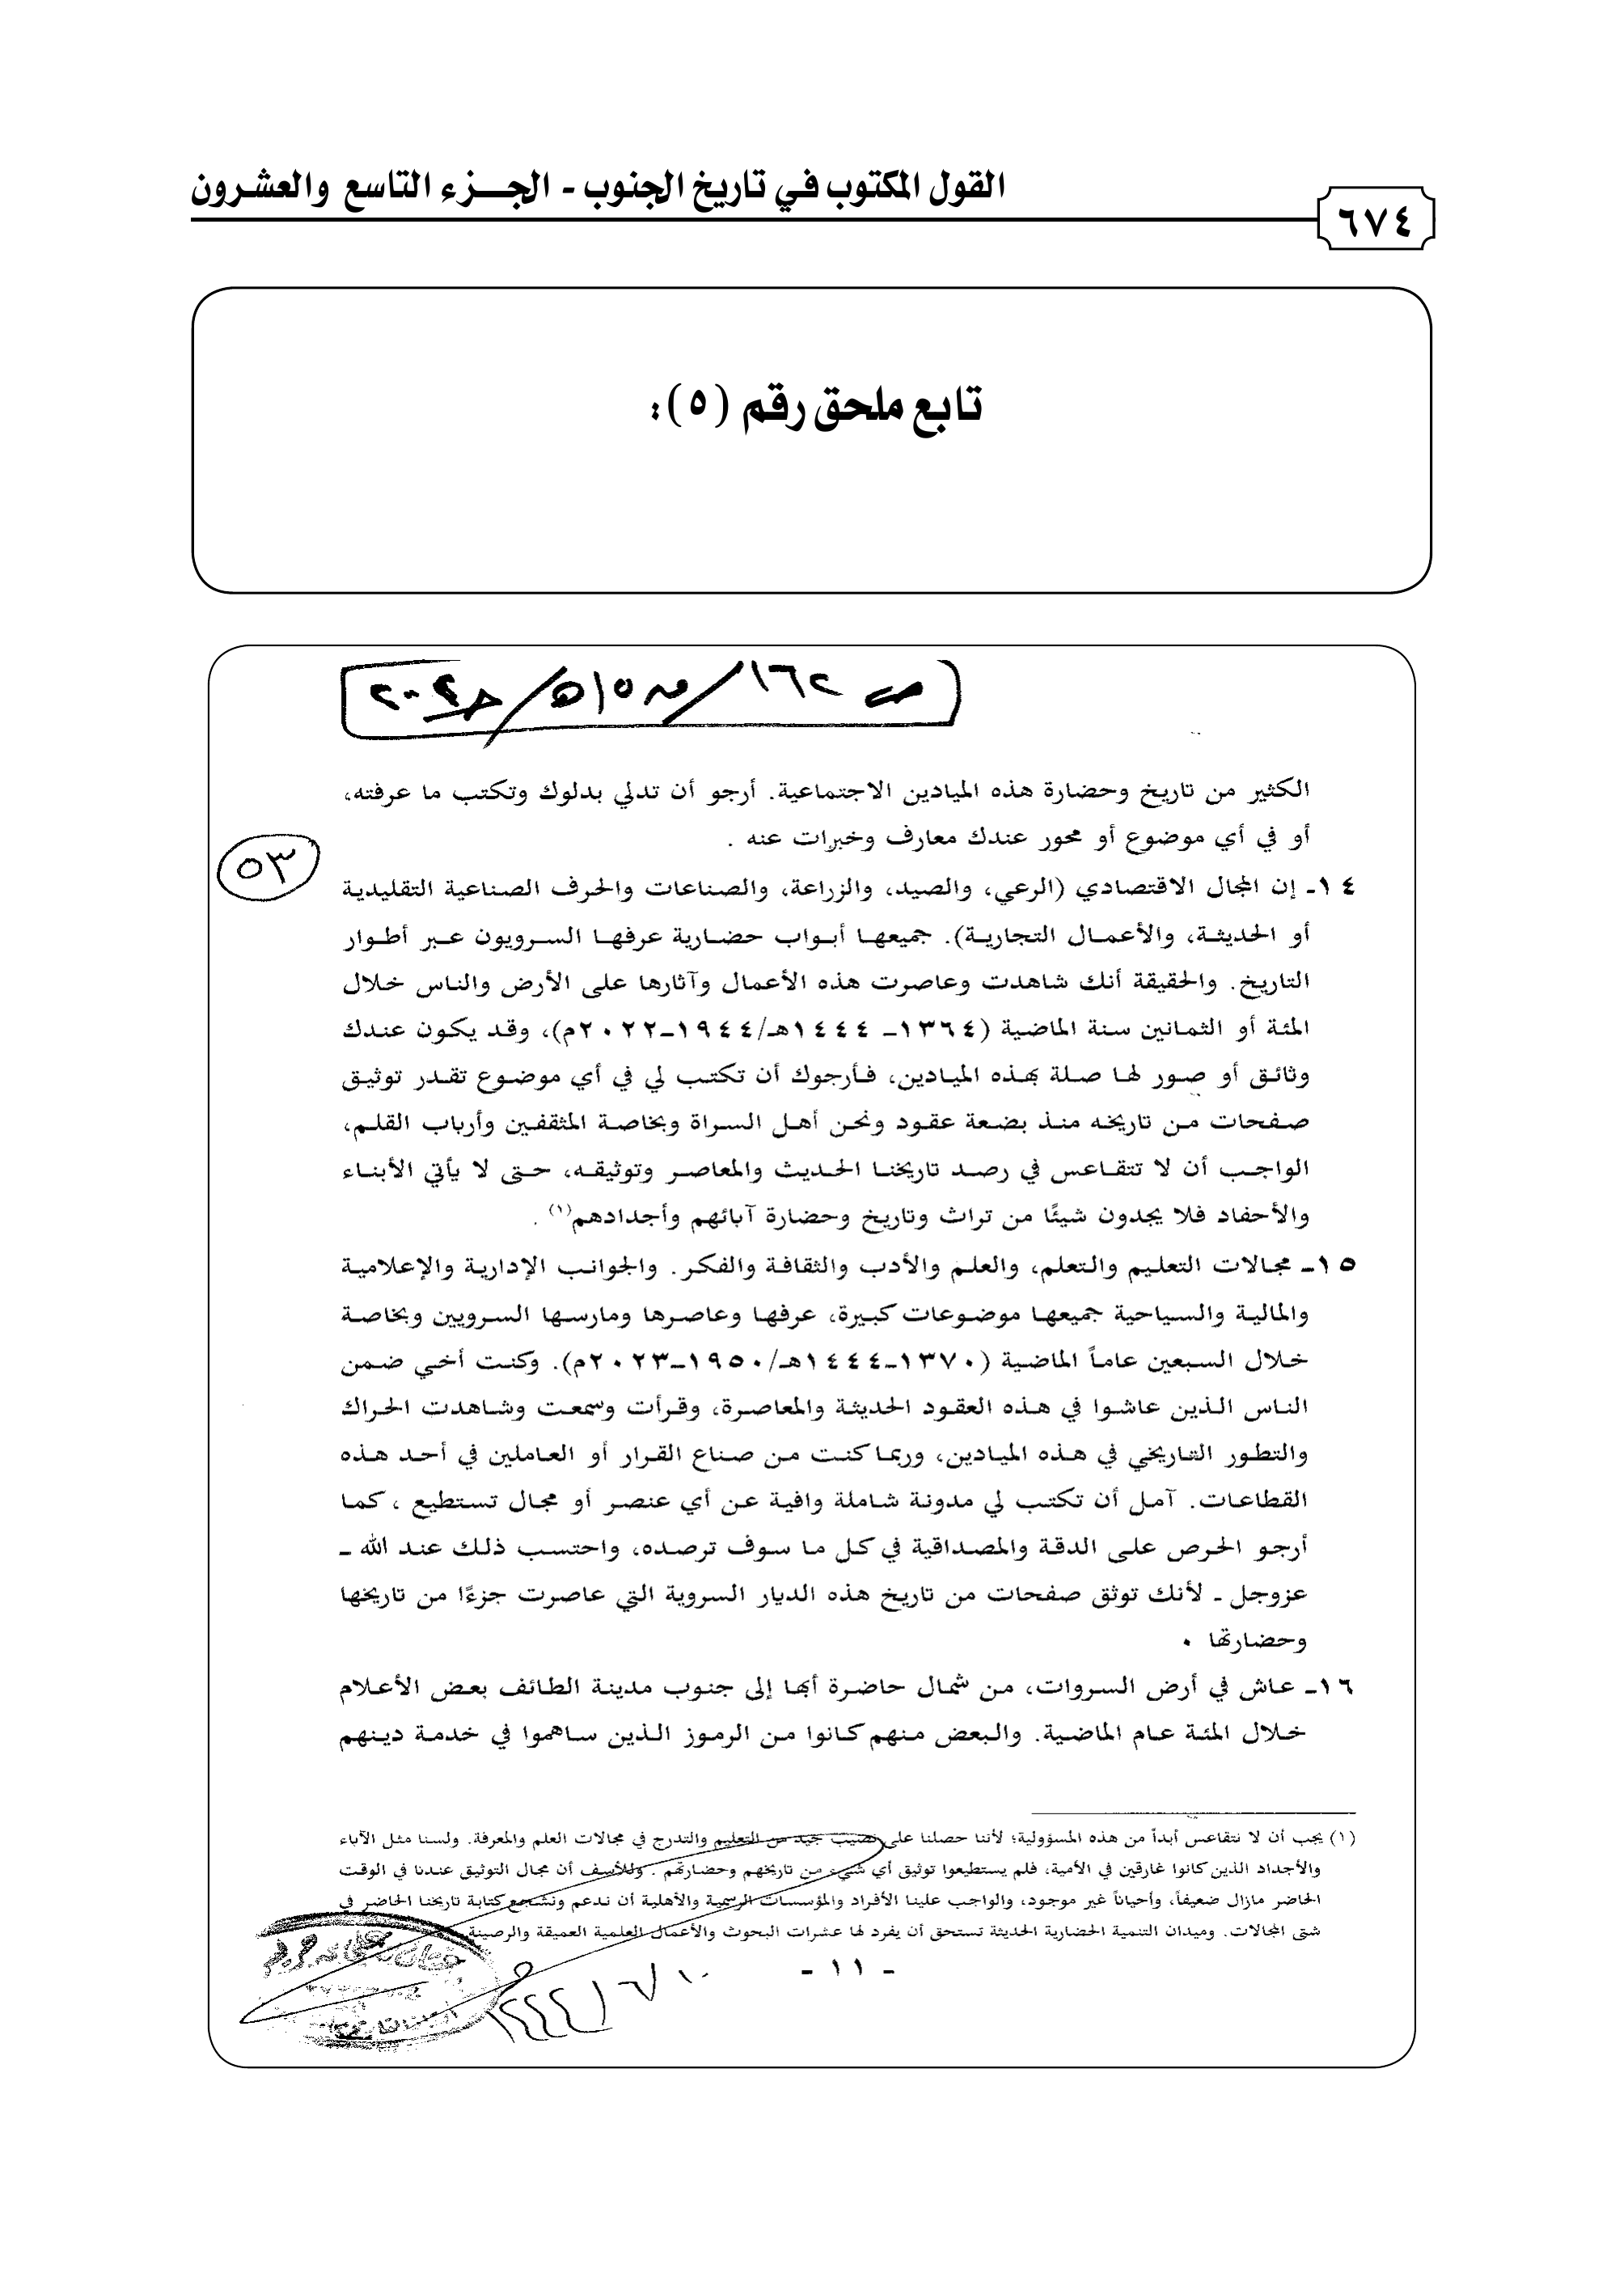 القول المكتوب في تاريخ الجنوب - الجـــزء التاسع والعشرون
٦٧٤
تابع ملحق رقم (٥):
٥٣
الكثير من تاريخ وحضارة هذه الميادين الاجتماعية. أرجو أن تدلي بدلوك وتكتب ما عرفته،
أو في أي موضوع أو محور عندك معارف وخبرات عنه .
١٤- إن المجال الاقتصادي (الرعي، والصيد، والزراعة، والصناعات والحرف الصناعية التقليدية
أو الحديثة، والأعمال التجارية). جميعها أبواب حضارية عرفها السرويون عبر أطوار
التاريخ. والحقيقة أنك شاهدت وعاصرت هذه الأعمال وآثارها على الأرض والناس خلال
المئة أو الثمانين سنة الماضية (١٣٦٤- ١٤٤٤هـ/١٩٤٤-٢٠٢٢م)، وقد يكون عندك
وثائق أو صور لها صلة بهذه الميادين، فأرجوك أن تكتب لي في أي موضوع تقدر توثيق
صفحات من تاريخه منذ بضعة عقود ونحن أهل السراة وبخاصة المثقفين وأرباب القلم،
الواجب أن لا تتقاعس في رصد تاريخنا الحديث والمعاصر وتوثيقه، حتى لا يأتي الأبناء
والأحفاد فلا يجدون شيئًا من تراث وتاريخ وحضارة آبائهم وأجدادهم(١) .
١٥- مجالات التعليم والتعلم، والعلم والأدب والثقافة والفكر. والجوانب الإدارية والإعلامية
والمالية والسياحية جميعها موضوعات كبيرة، عرفها وعاصرها ومارسها السرويين وبخاصة
خلال السبعين عاماً الماضية (١٣٧٠-١٤٤٤هـ/١٩٥٠-٢٠٢٣م). وكنت أخي ضمن
الناس الذين عاشوا في هذه العقود الحديثة والمعاصرة، وقرأت وسمعت وشاهدت الحراك
والتطور التاريخي في هذه الميادين، وربما كنت من صناع القرار أو العاملين في أحد هذه
القطاعات. آمل أن تكتب لي مدونة شاملة وافية عن أي عنصر أو مجال تستطيع ، كما
أرجو الحرص على الدقة والمصداقية في كل ما سوف ترصده، واحتسب ذلك عند الله -
عزوجل - لأنك توثق صفحات من تاريخ هذه الديار السروية التي عاصرت جزءًا من تاريخها
وحضارتها .
١٦- عاش في أرض السروات، من شمال حاضرة أبها إلى جنوب مدينة الطائف بعض الأعلام
خلال المئة عام الماضية. والبعض منهم كانوا من الرموز الذين ساهموا في خدمة دينهم
(١) يجب أن لا نتقاعس أبداً من هذه المسؤولية؛ لأننا حصلنا على نصيب جيد من التعليم والتدرج في مجالات العلم والمعرفة. ولسنا مثل الآباء
والأجداد الذين كانوا غارقين في الأمية، فلم يستطيعوا توثيق أي شيء من تاريخهم وحضارتهم . وللأسف أن مجال التوثيق عندنا في الوقت
الحاضر مازال ضعيفاً، وأحياناً غير موجود، والواجب علينا الأفراد والمؤسسات الرسمية والأهلية أن ندعم ونشجع كتابة تاريخنا الحاضر في
شتى المجالات. وميدان التنمية الحضارية الحديثة تستحق أن يفرد لها عشرات البحوث والأعمال العلمية العميقة والرصينة
- ١١ -